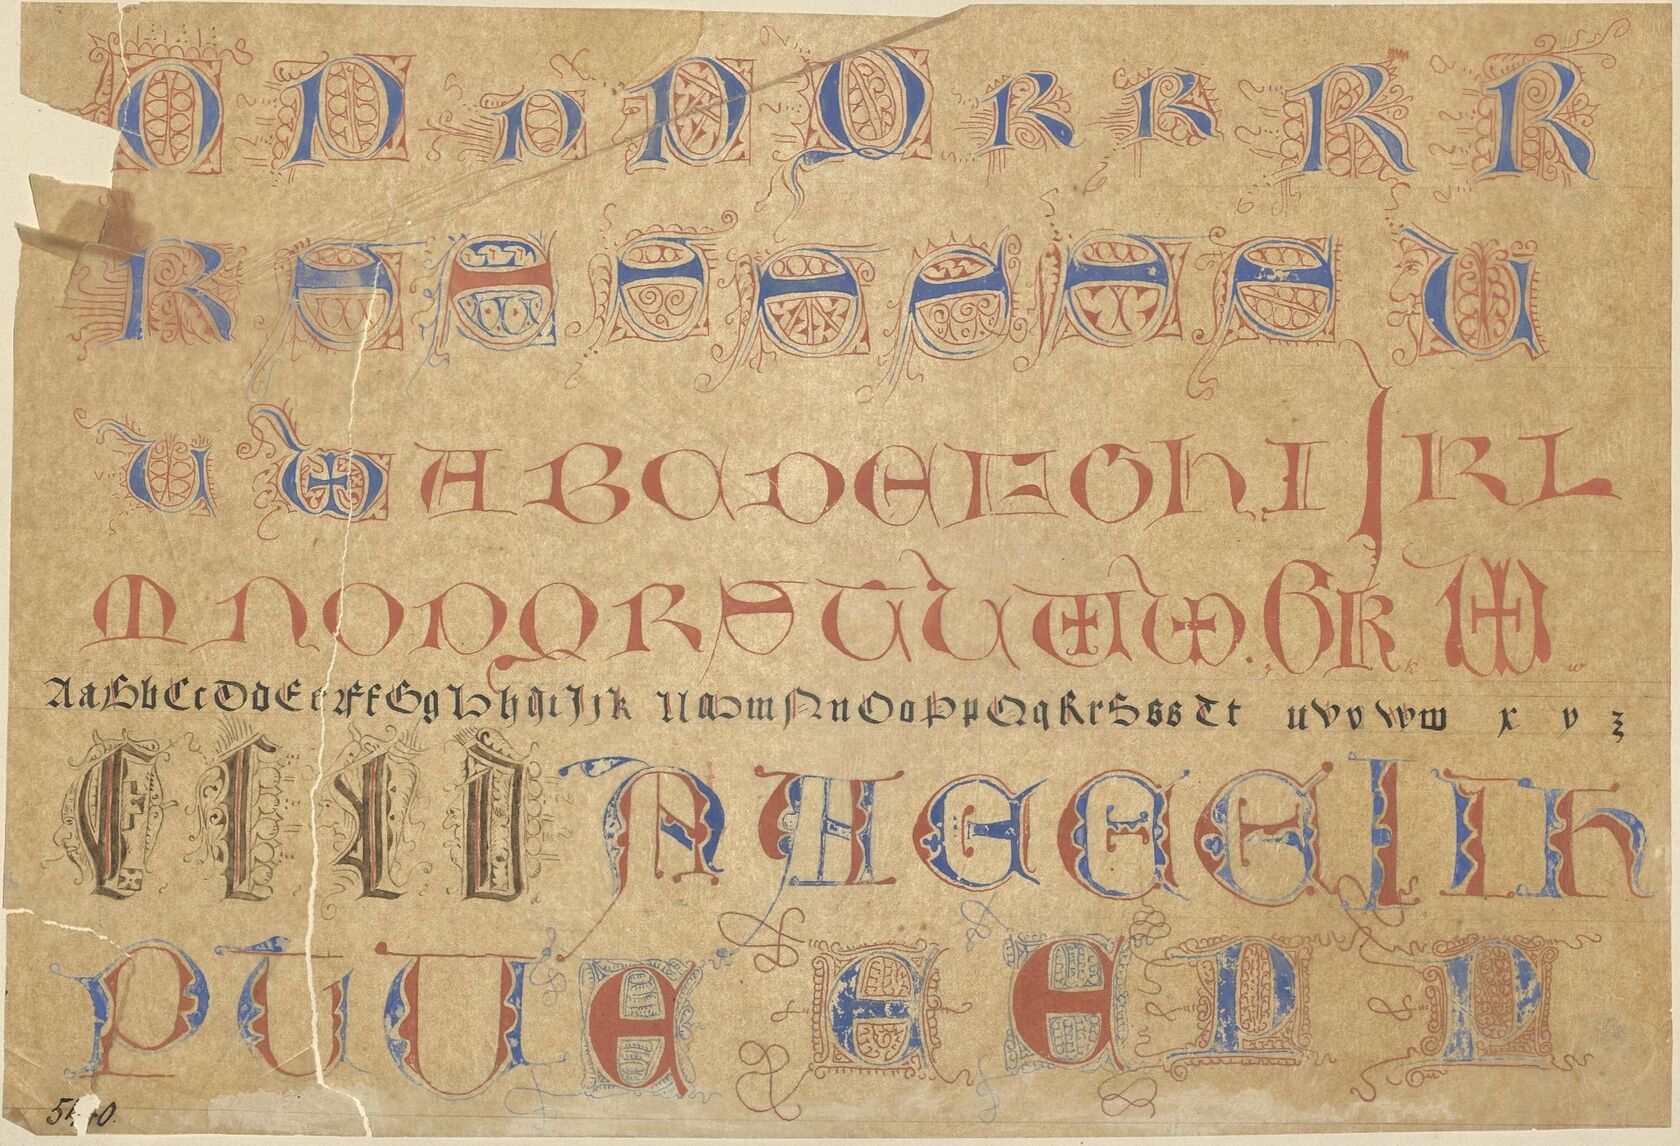 O P P P Q R R R R
R S S S S S S S U
U W A B C D E F G H I J K L
M N O P Q R S T U U W W . G k k W w
A a B b C c D d E e F f G g H h I i J j k l l M m N n O o P p Q q R r S s s T t u v v w w x y z
E L L D N A E E E I L h
P U U E E E P P